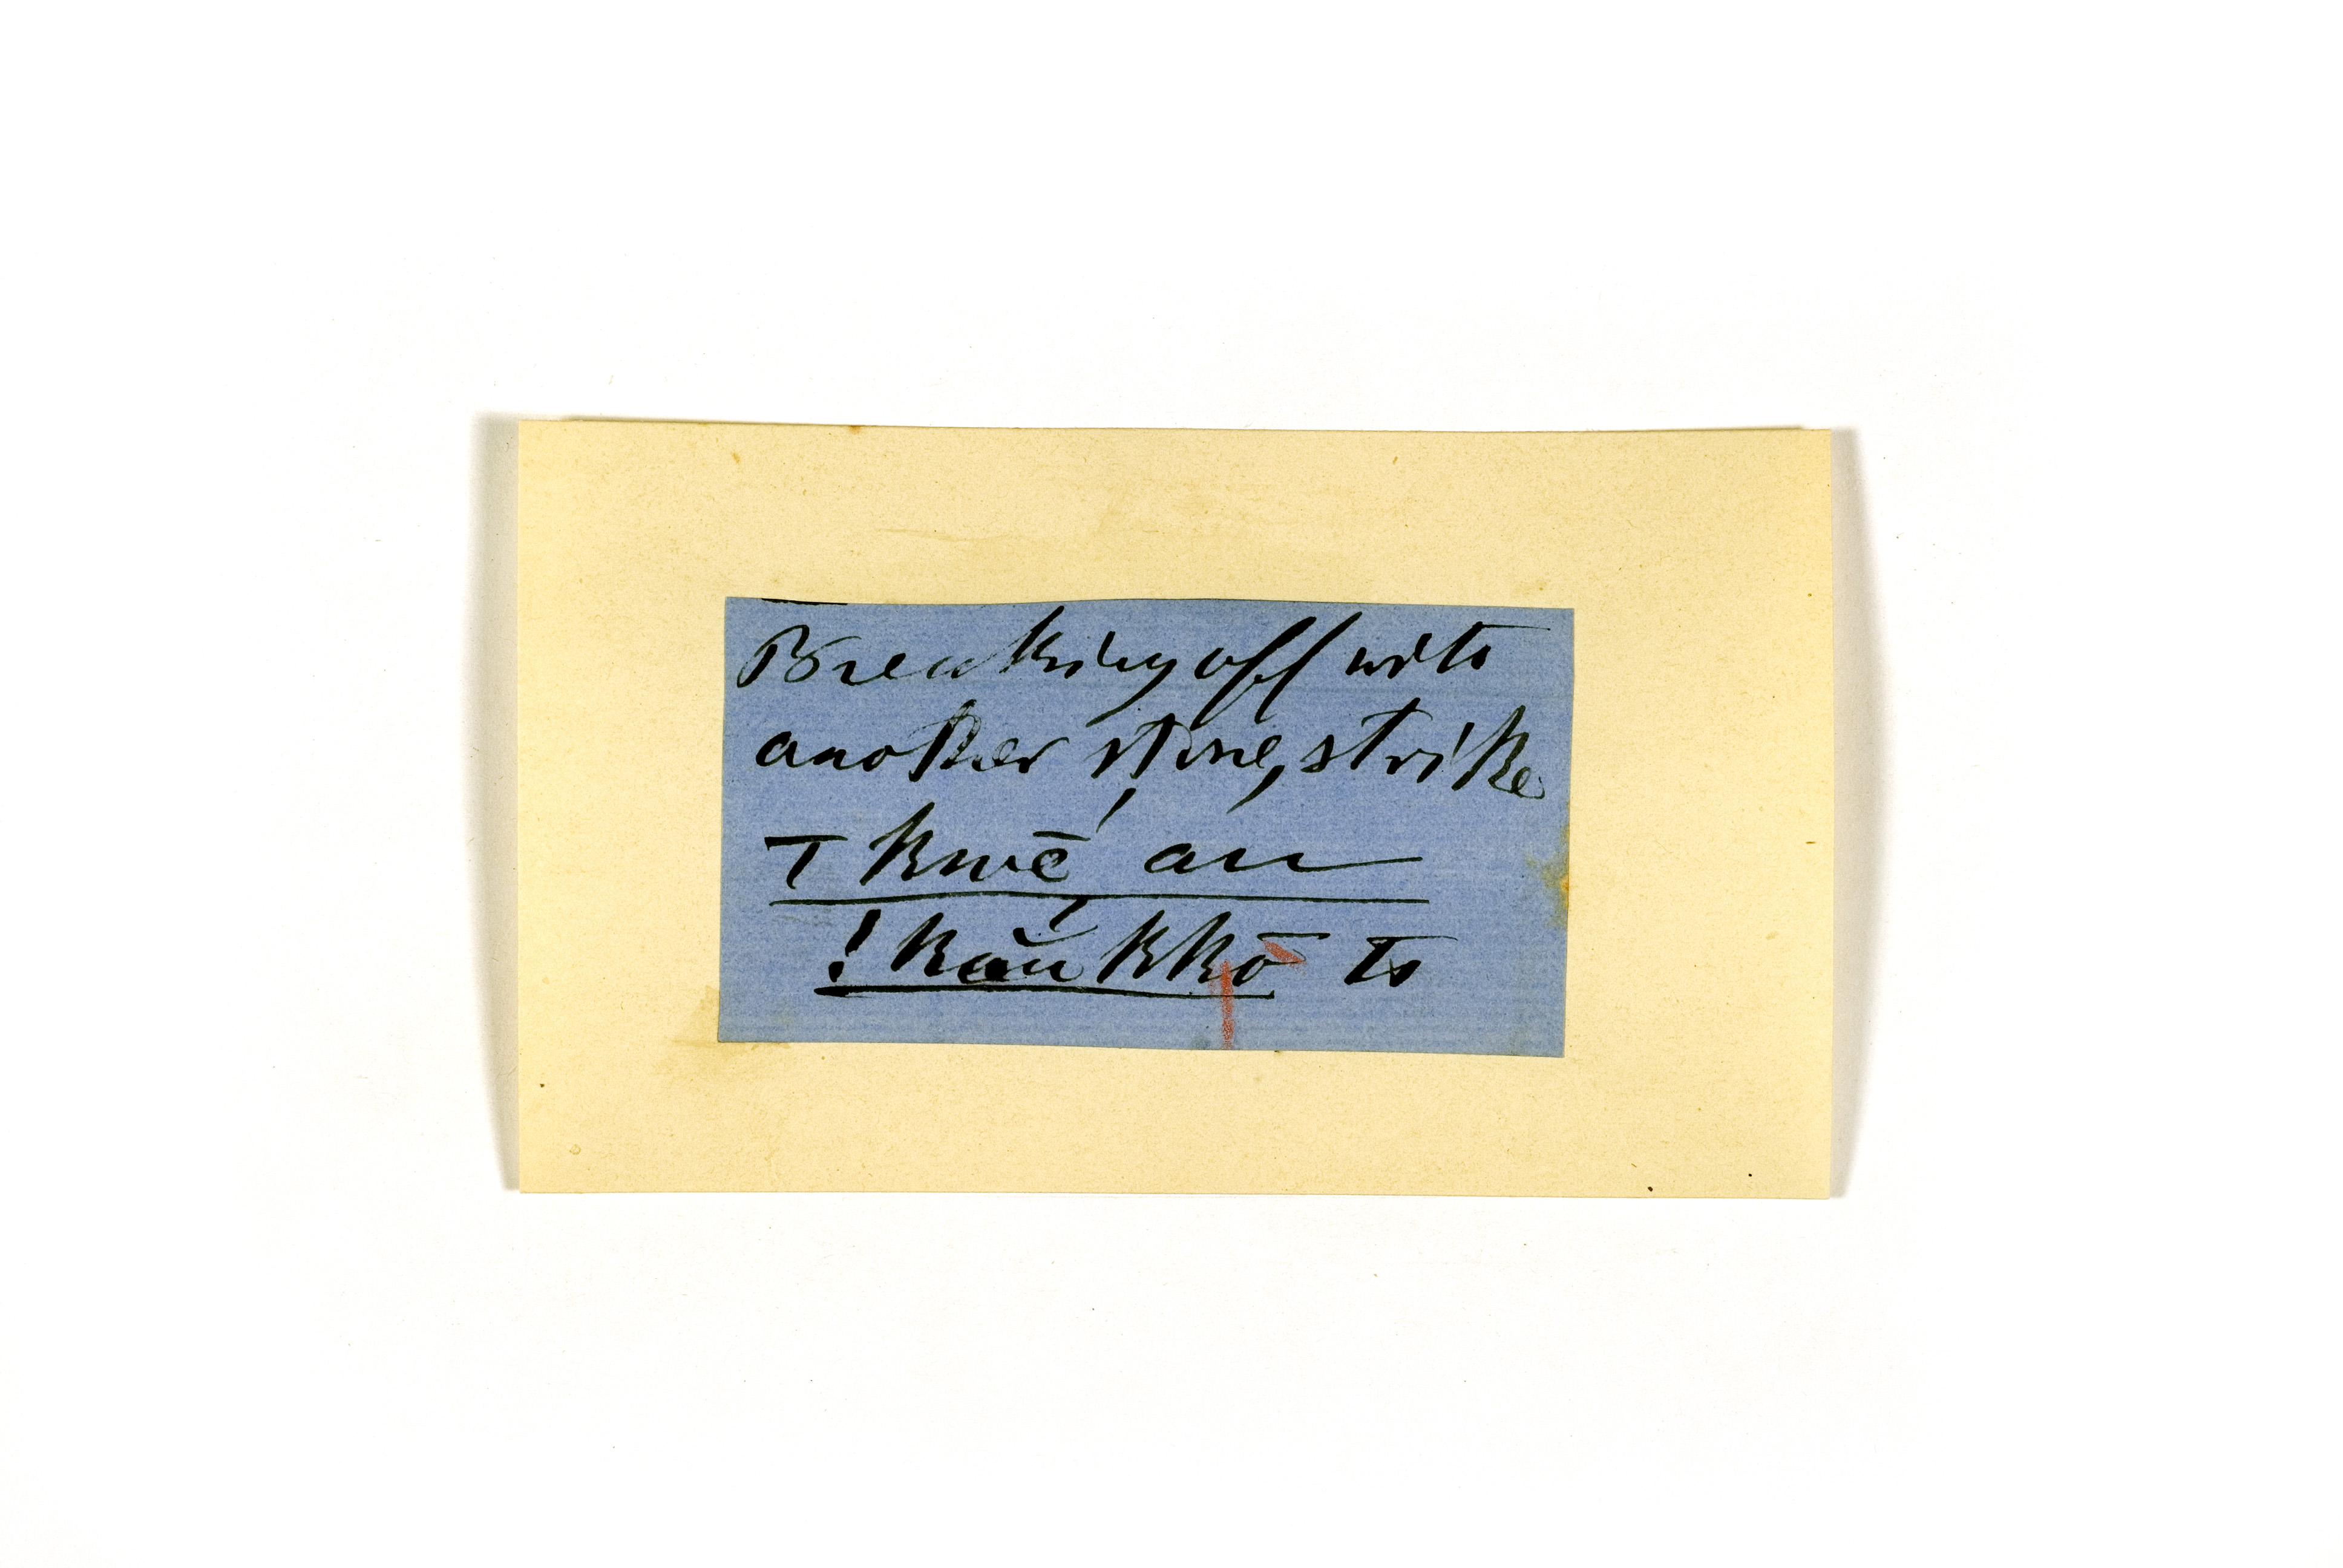 Breaking off with
another stone, strike
T kwḗ an
! kăŭkkō to